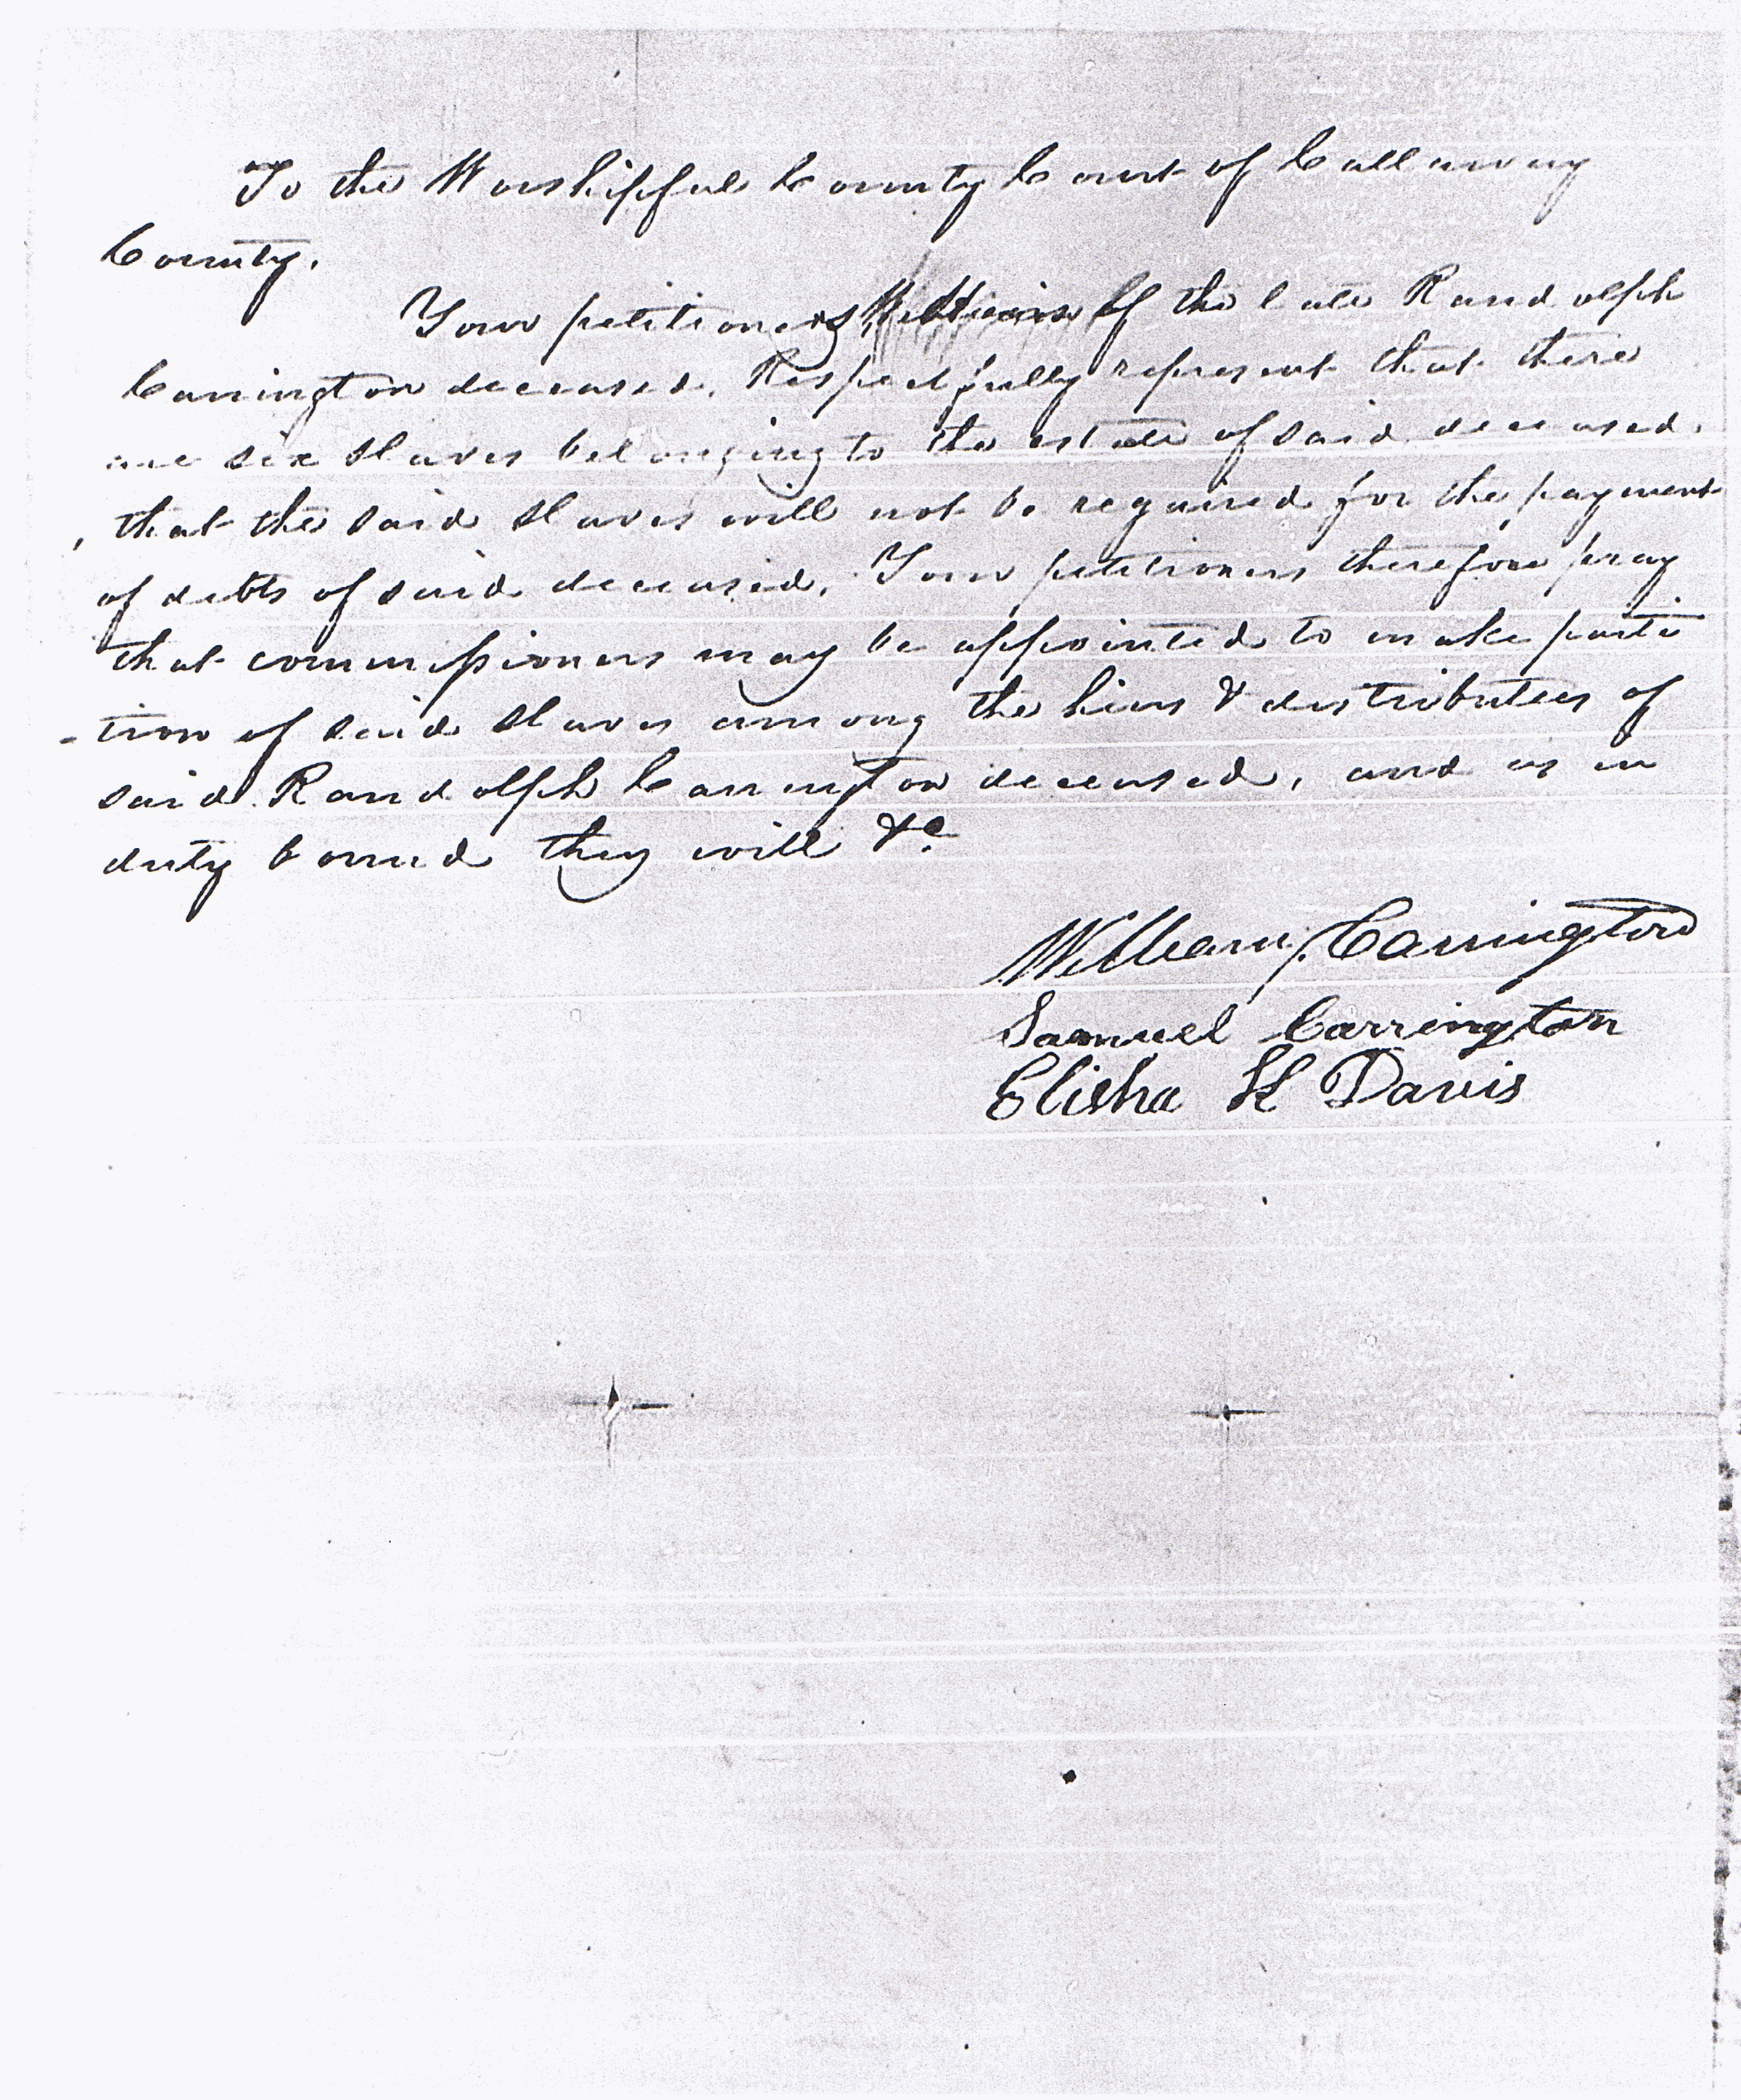 To the Worshipful County Court of Callaway
County.
Your petitioners, Heirs of the late Randolph
Carrington deceased. Respectfully represent that there
are six slaves belonging to the estate of said deceased.
, that the said slaves will not be required for the payment
of debts of said deceased. Your petitioners therefore pray
that commissioners may be appointed to make parti
-tion of said slaves among the heirs & distributees of
said Randolph Carrington deceased, and as in
duty bound they will &c
William J. Carrington
Samuel Carrington
Elisha H Davis